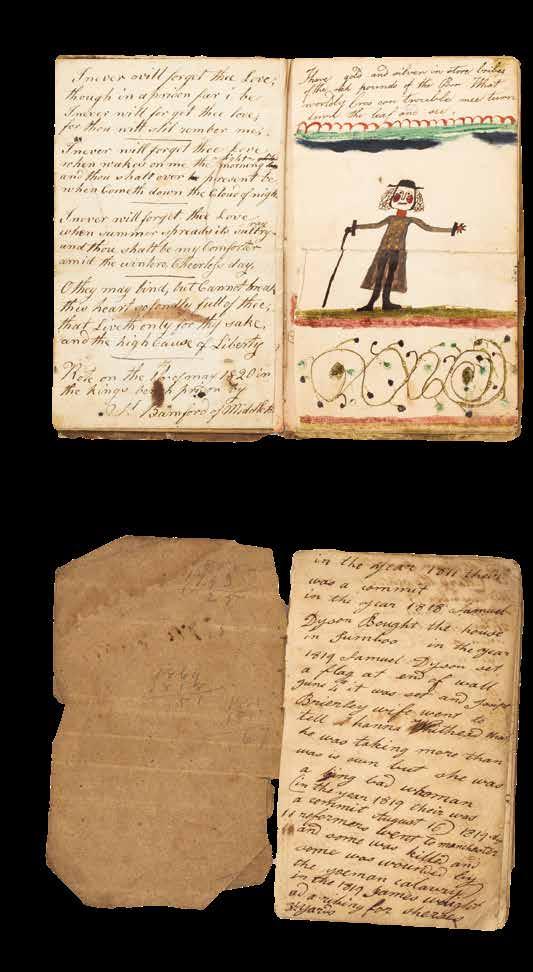 I never will forget thee Love;
though in a prison far i be
I never will for get thee love;
for thou wilt still rember me;
I never will forget thee Love
when waked on me the light
morning
and thou shalt over be present be
when Cometh down the Cloud of night
I never will forget thee Love
when summer spreads its sultry
and thou shalt be my Comforter
amid the winters Cheerless day,
O they may bind, but Cannot break
thee heart so fondly full of thee;
that Liveth only for thy sake,
and the high Cause of Liberty
on the may 1820 in
the kings bench prison By
Bamford of
There gold and silver in store
of the rich pounds of the Poor What
worldly can trouble mee turn
the leaf and see
in the year 1811 their
was a commit
in the year 1818 Samuel
Dyson Bought the house
in Jumboo in the year
1819 Samuel Dyson set
a flag at end of wall
June 4 it was set and
Brierley wife went to
tell hanna Withead that
he was taking more than
was is own but she was
a lying bad whoman
(in the year 1819 their was
a commit August 16) 1819 the
reformers went to manchester
and some was killed and
some was wounded by
the yoeman calavary
in the 1819 James wright
for
yards